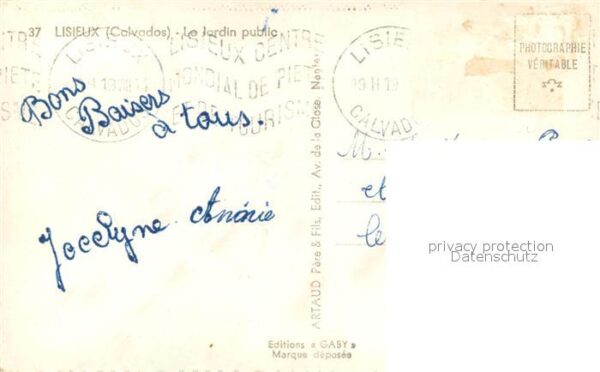 37 LISIEUX (Calvados) - Le Jardin public
LISIEUX CENTRE
MONDIAL DE PIETE
TOURISM
CALVADOS
PHOTOGRAPHIE
VÉRITABLE
Bons
Baisers
à tous.
Jocelyne
ARTAUD Père & Fils, Edit., Av. de la Close, Nantes
M.
et
le
privacy protection
Datenschutz
Editions « GABY »
Marque déposée